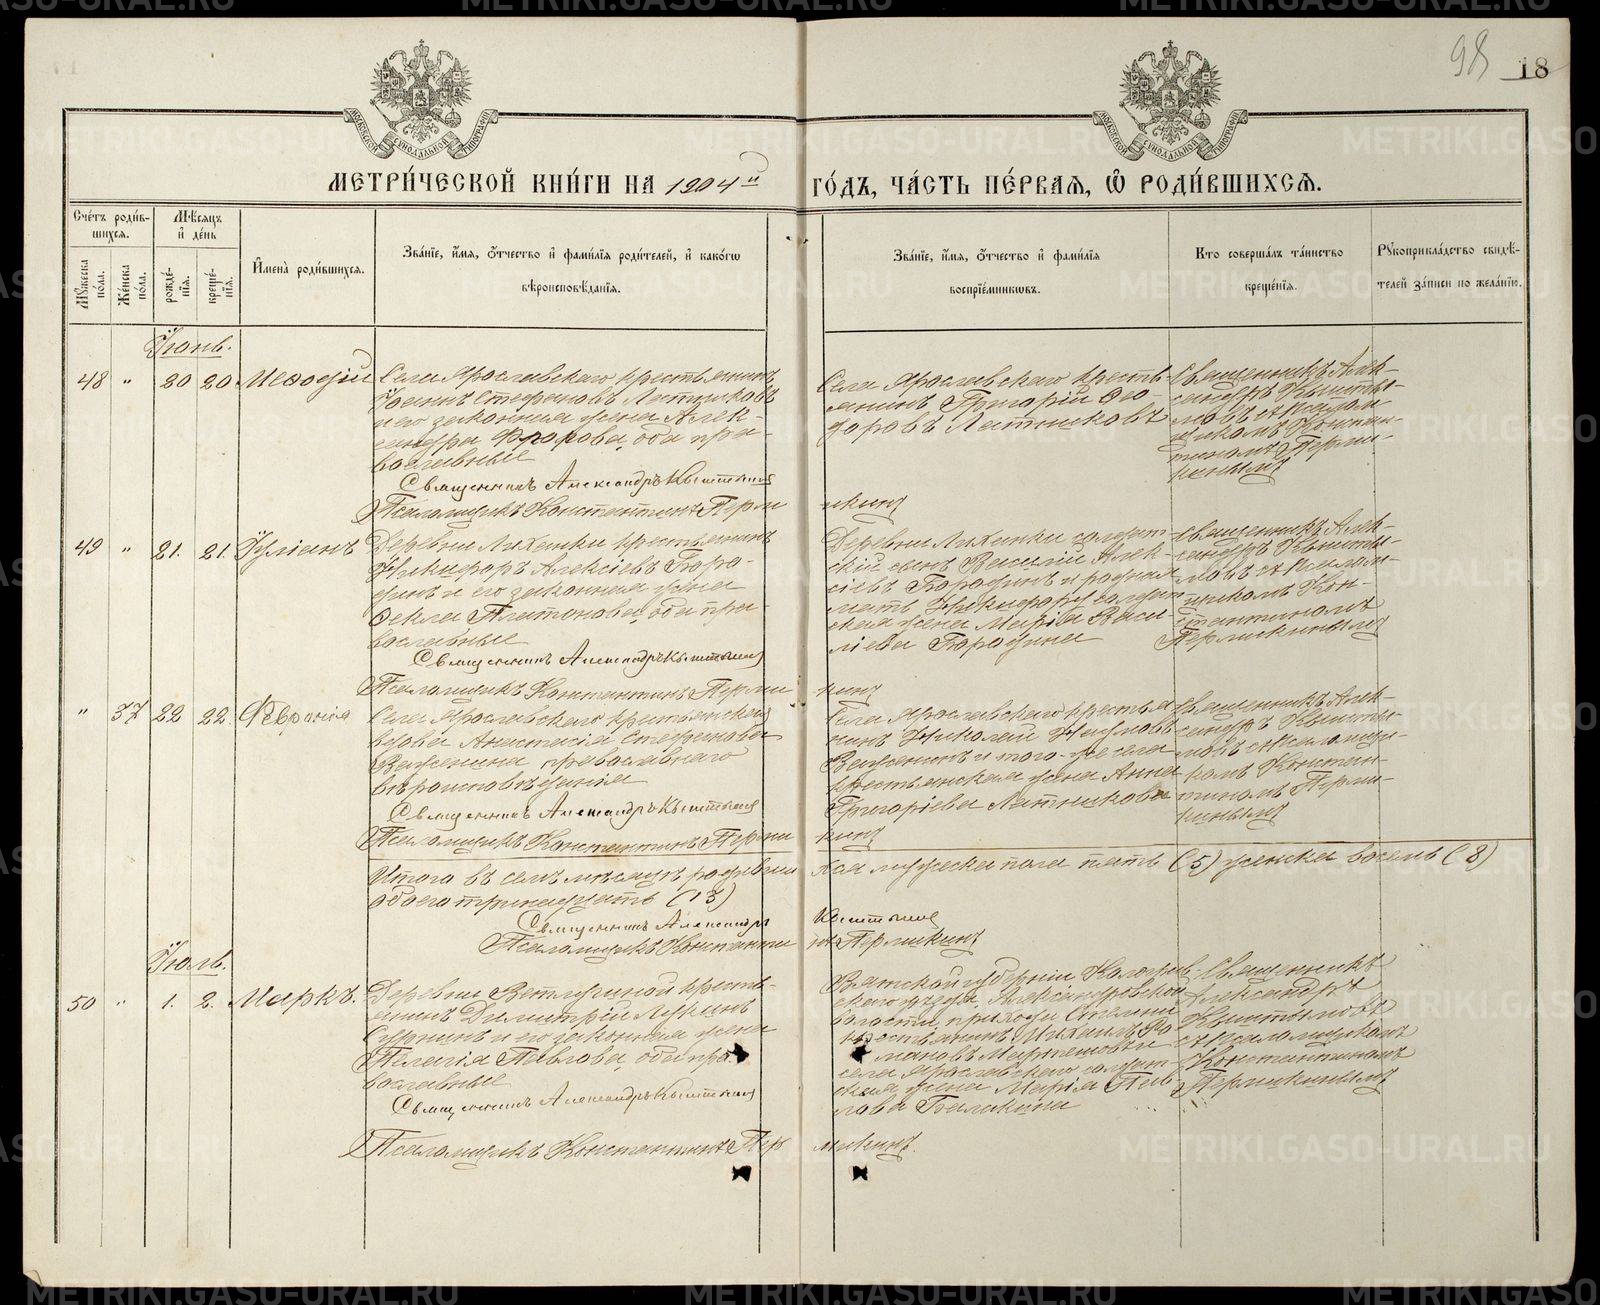 98 18
МЕТРИ́ЧЕСКОЙ КНИ́ГИ НА 1904й ГО́ДЪ, ЧА́СТЬ ПЕ́РВАЯ, Ѿ РОДИ́ВШИХСЯ.
Сче́тъ роди́вшихся.
Мѣ́сяцъ и҆ де́нь
Мꙋ́жеска по́ла.
Же́нска по́ла.
рожде́нїя.
креще́нїя.
И҆мена̀ роди́вшихся.
Зва́нїе, и҆́мя, ѻ҆́тчество и҆ фами́лїя роди́телей, и҆ како́гѡ
вѣроисповѣ́данїя.
Зва́нїе, и҆́мя, ѻ҆́тчество и҆ фами́лїя
воспрїе́мникѡвъ.
Кто соверша́лъ та́инство
креще́нїя.
Рꙋкоприкла́дство свидѣ́-
телей за́писи по жела́нїю.
Іюнь.
48 " 20 20 Меѳодій
Села Ярославскаго крестьянинъ
Іоаннъ Стефановъ Латниковъ
и его законная жена Алек-
сандра Фролова, оба пра-
вославные
Священникъ Александръ Кыштымовъ
Псаломщикъ Константинъ Перми
кинъ
Села Ярославскаго кресть-
янинъ Григорій Ѳео-
доровъ Латниковъ
Священникъ Алек-
сандръ Кышты-
мовъ съ псалом-
щикомъ Констан-
тиномъ Перми-
кинымъ
49 " 21. 21. Іуліанъ
Деревни крестьянинъ
Никифоръ Алексіевъ Боро-
динъ и его законная жена
Ѳекла Платонова, оба пра-
вославные
Священникъ Александръ Кыштымовъ
Псаломщикъ Константинъ Перми
кинъ
Деревни солдат-
скій сынъ Василій Алек-
сіевъ Бородинъ и родная
мать Никифора солдат-
ская жена Марія Васи-
ліева Бородина
Священникъ Алек-
сандръ Кышты-
мовъ съ псалом-
щикомъ Кон-
стантиномъ
Пермикинымъ
" 37 22 22. Февронія
Села Ярославскаго крестьянская
вдова Анастасія Стефанова
Важенина православнаго
вѣроисповѣданія
Священникъ Александръ Кыштымовъ
Псаломщикъ Константинъ Перми
кинъ
Села Ярославскаго крестья
нинъ Николай Наумовъ
Важенинъ и того-же села
крестьянская жена Анна
Григоріева Латникова
Священникъ Алек-
сандръ Кышты-
мовъ съ псаломщи-
комъ Констан-
тиномъ Перми-
кинымъ
Итого въ семъ мѣсяцѣ родивши
хся мужеска пола пять (5) женска восемь (8)
обоего тринадцать (13)
Священникъ Александръ Кыштымовъ
Псаломщикъ Константинъ Пермикинъ
Іюль.
50 " 1. 2. Маркъ.
Деревни кресть-
янинъ Димитрій
и его законная жена
Пелагія Павлова, оба пра-
вославные
Священникъ Александръ Кыштымовъ
Псаломщикъ Константинъ Пер
микинъ.
Вятской губерніи
скаго уѣзда, Александровской
волости, прихода
крестьянинъ Михаилъ Ро-
мановъ и
села Ярославскаго солдат-
ская жена Марія Пав-
лова
Священникъ
Александръ
Кыштымовъ
съ псаломщикомъ
Константиномъ
Пермикинымъ
METRIKI.GASO-URAL.RU